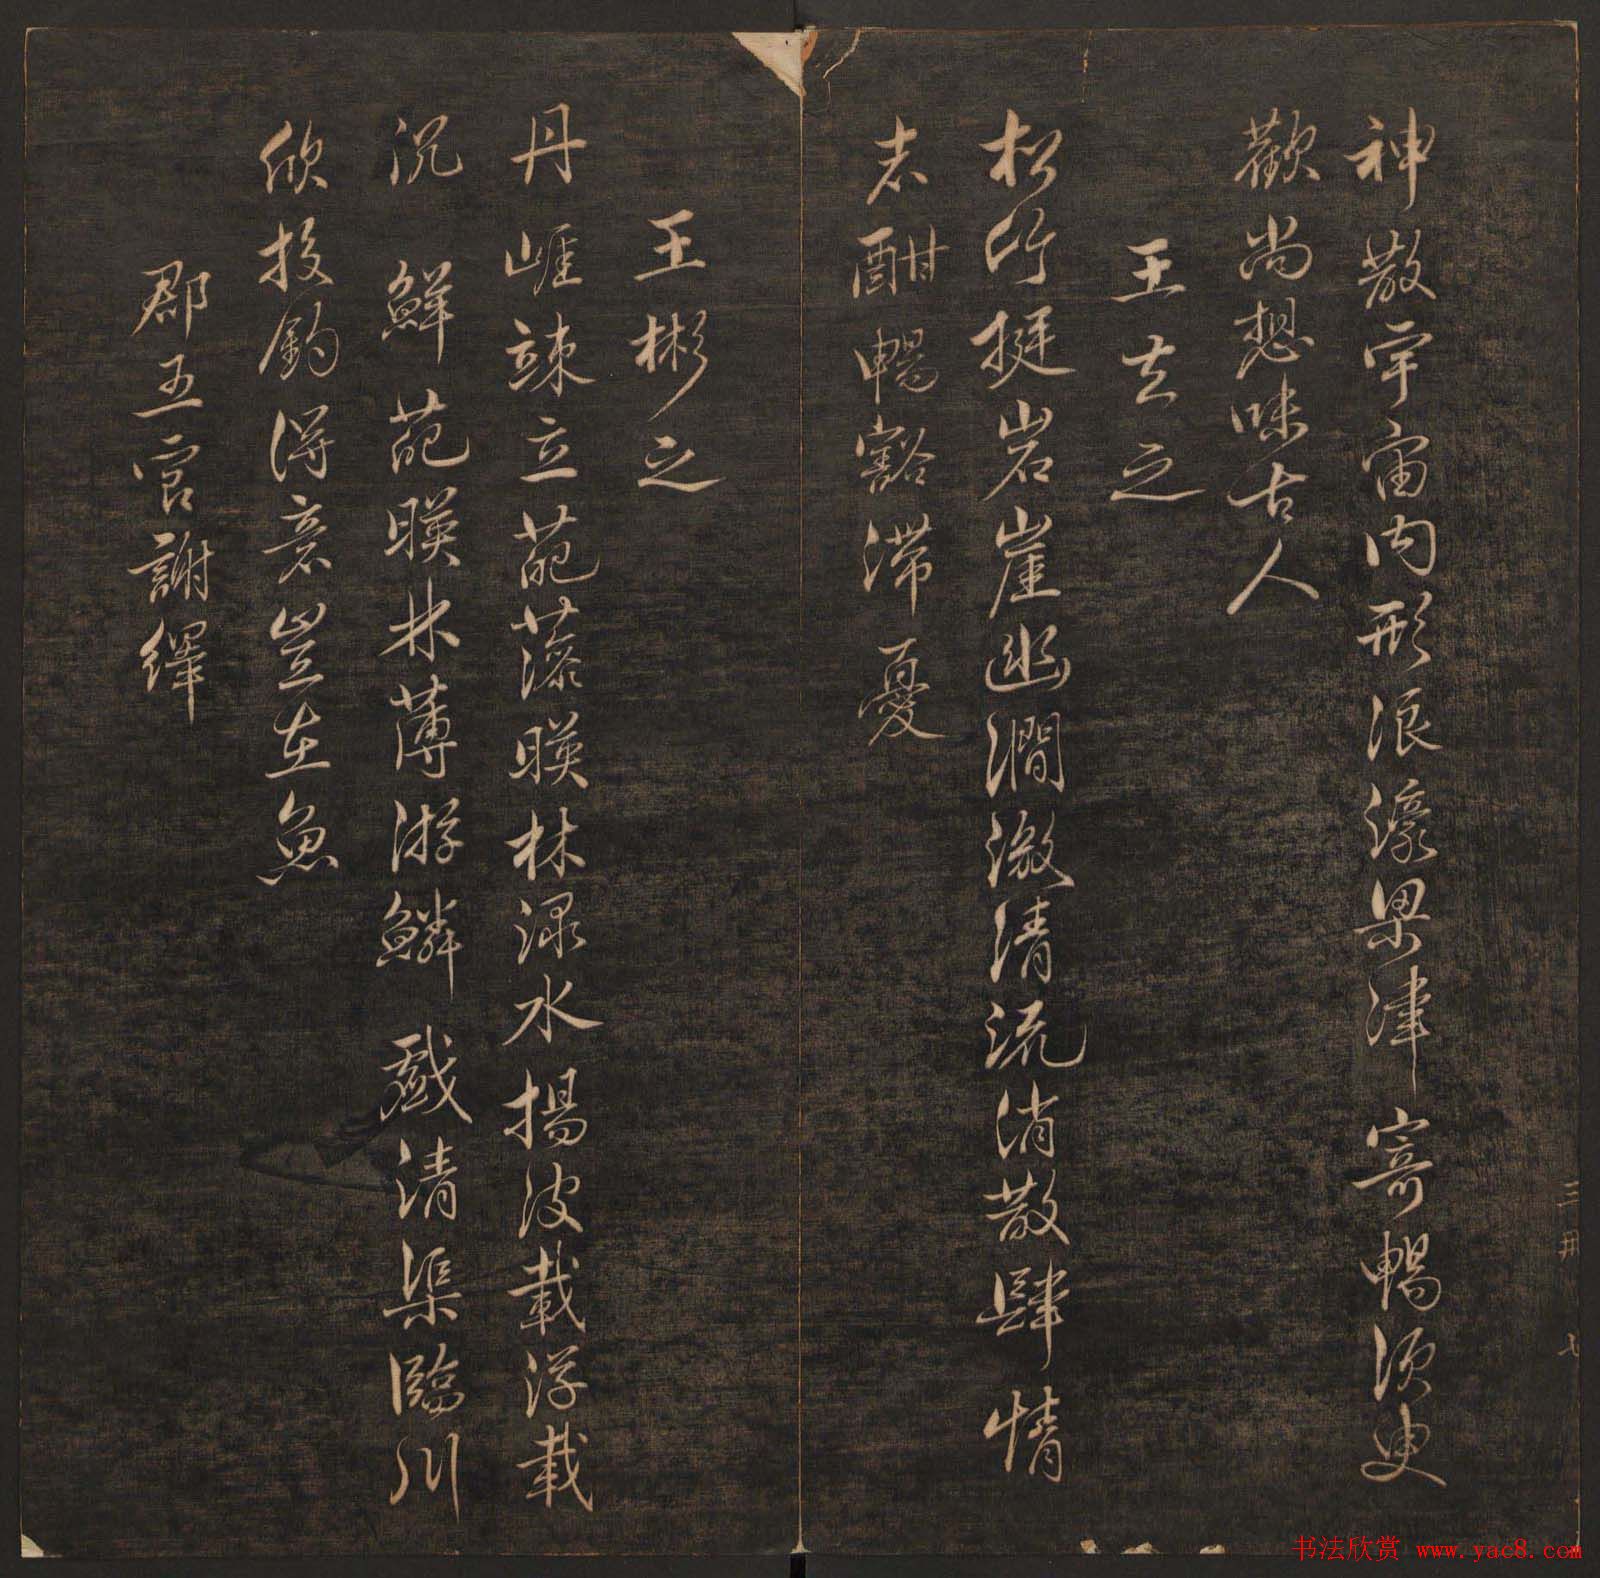 神散宇宙內形浪濠梁津寄暢須臾
歡尚想味古人
王玄之
松竹挺岩崖幽澗激清流消散肆情
志酣暢豁滯憂
王彬之
丹崖竦立葩藻暎林淥水揚波載浮載
沉鮮葩暎林薄游鱗戲清渠臨川
欣投釣得意豈在魚
郡五官謝繹
三冊 七
书法欣赏 www.yac8.com